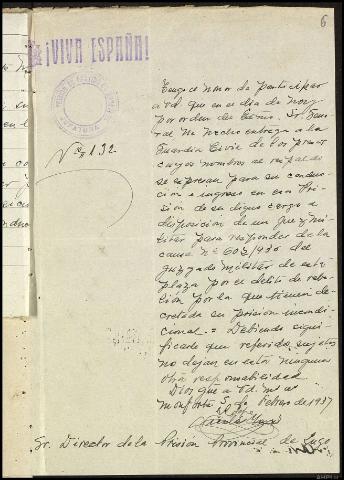 6
¡VIVA ESPAÑA!
Nº 132
Tengo el honor de participar
a Vd. que en el dia de hoy y
por orden del Excmo. Sr. Gene-
ral he hecho entrega a la
Guardia Civil de los pre
cuyos nombres al respaldo
se expresan para su conduc-
ción e ingreso en esa Pri-
sión de su digno cargo a
disposición de un Juez mi-
litar para responder de la
causa nº 602/936 del
Juzgado militar de esta
plaza por el delito de rebe-
lión por la que tienen de-
cretada su prisión incondi-
cional. = Debiendo signi-
ficarle que referidos sujetos
no dejan en esta ninguna
otra responsabilidad
Dios gue a Vd. m. a.
Monforte 5 de Febrero de 1937
Sr. Director de la Prisión Provincial de Lugo